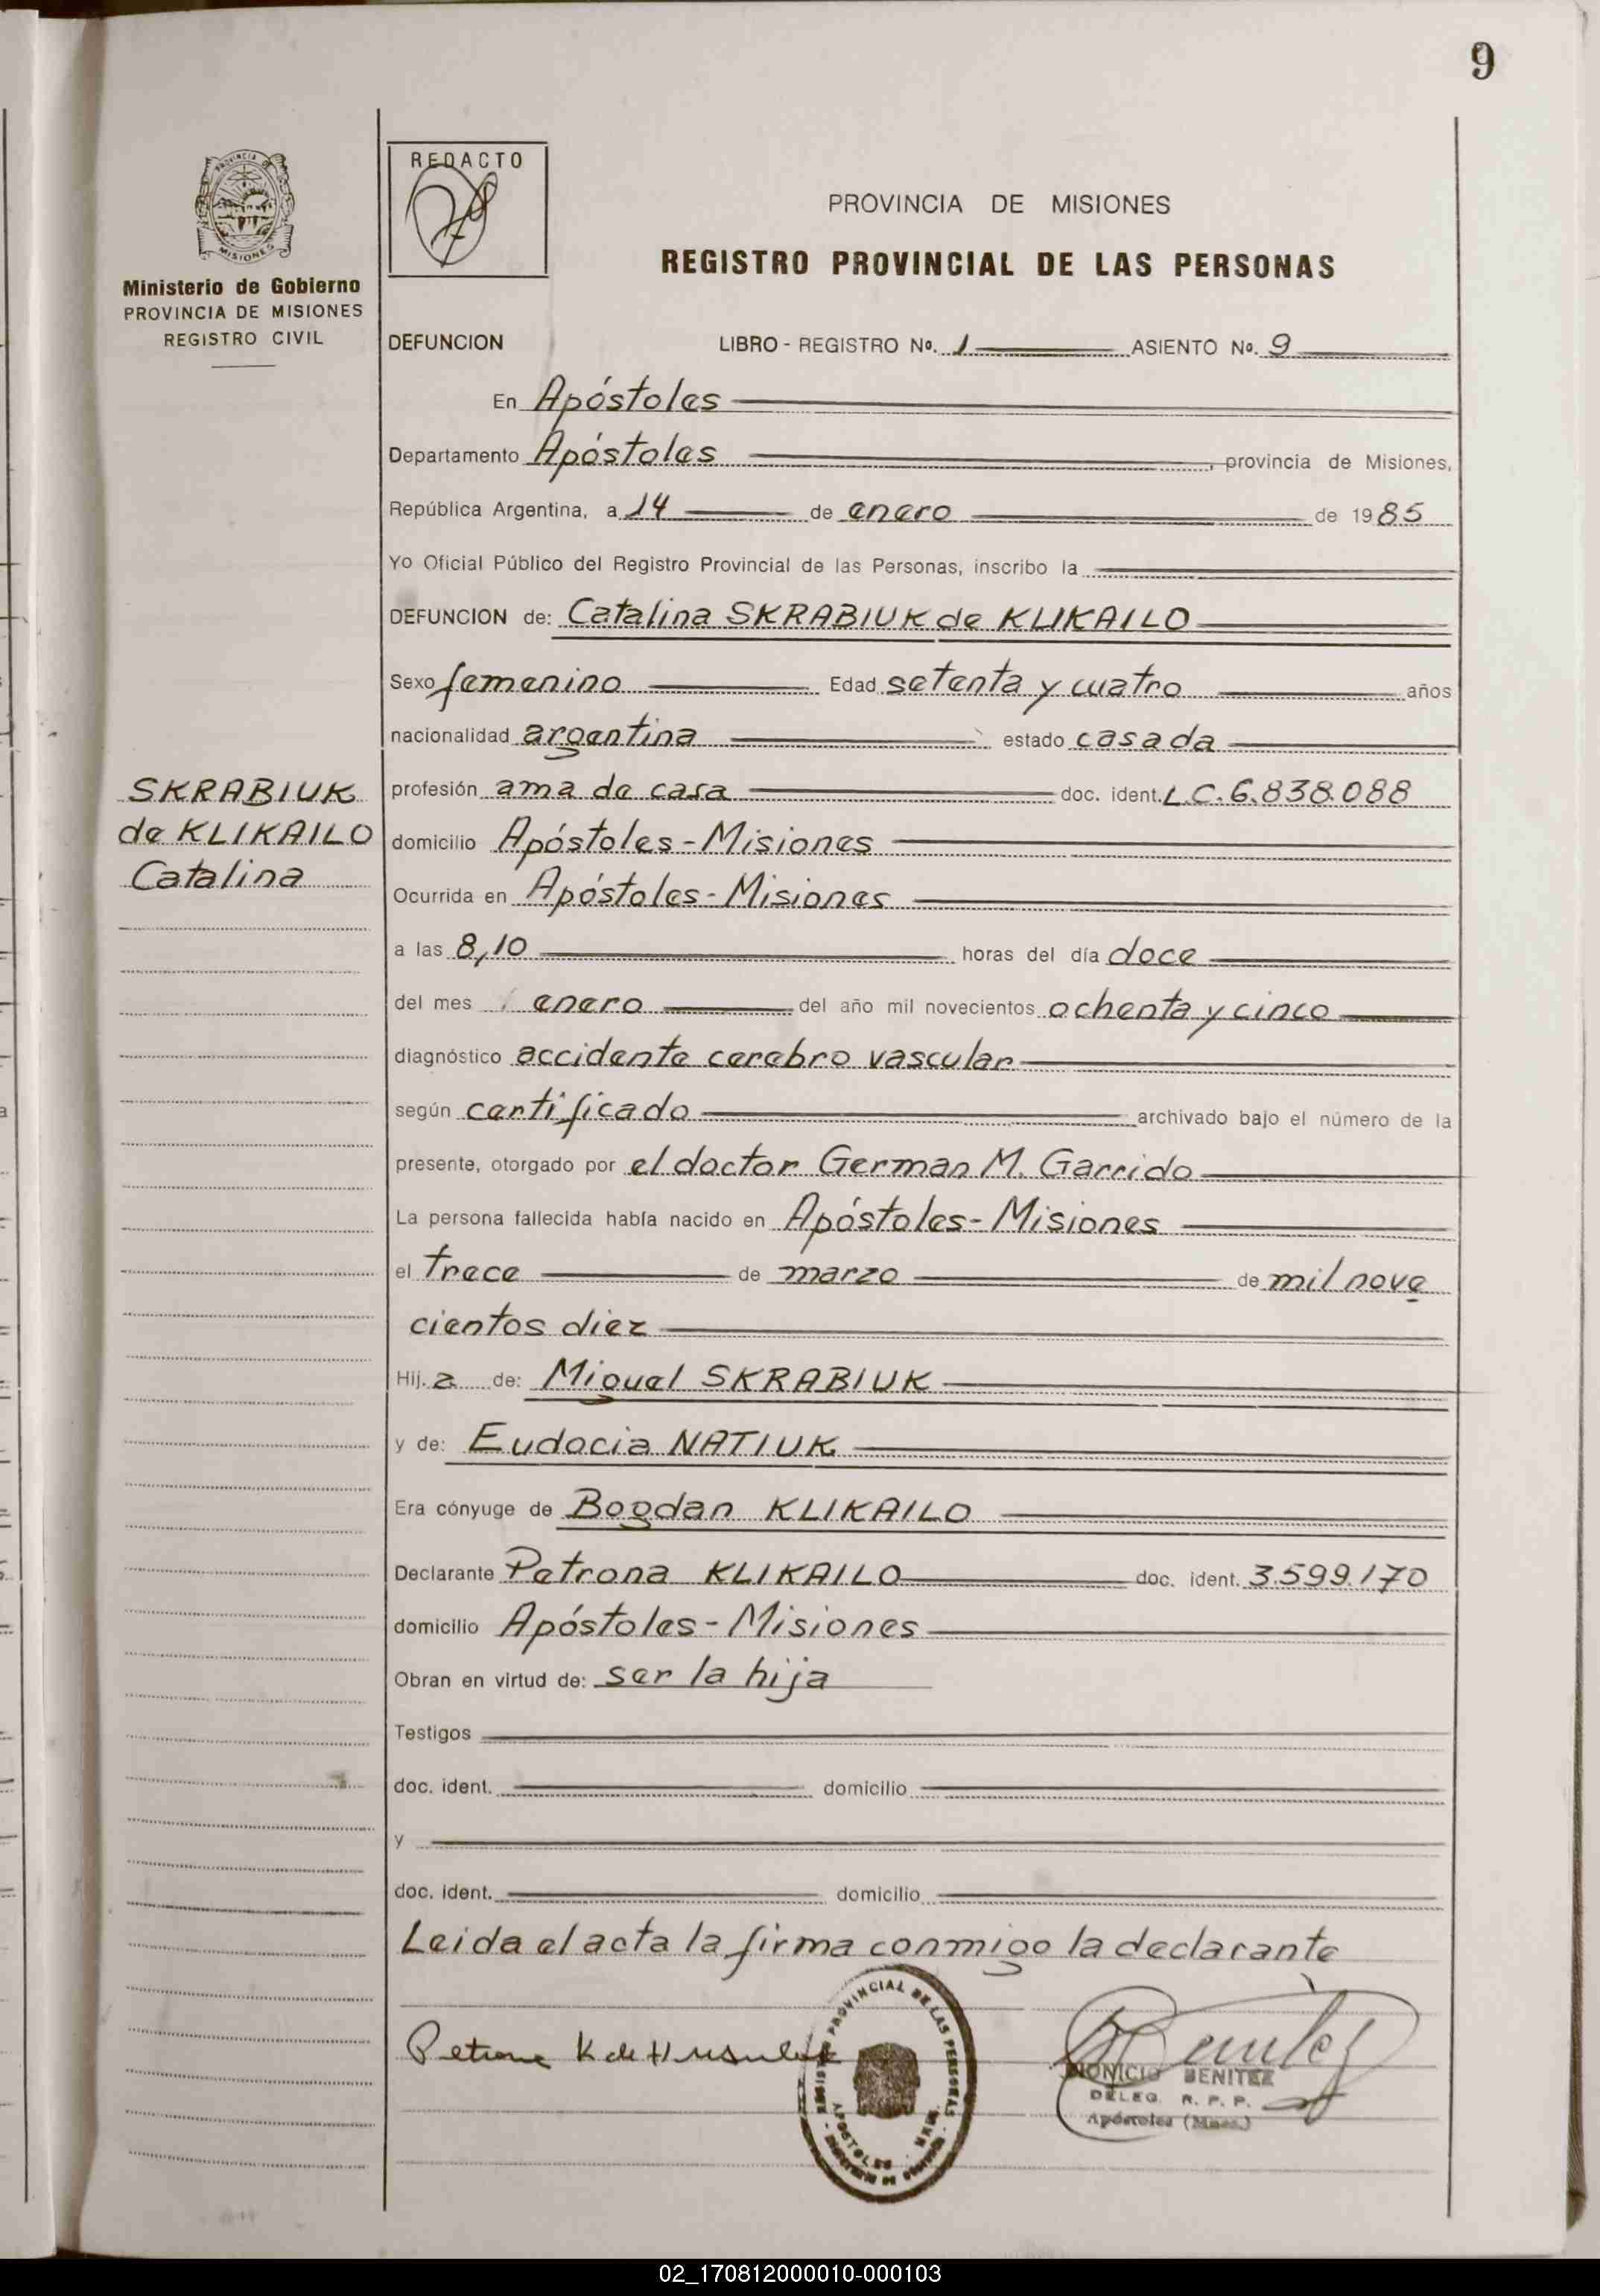 9
PROVINCIA DE
MISIONES
Ministerio de Gobierno
PROVINCIA DE MISIONES
REGISTRO CIVIL
SKRABIUK
de KLIKAILO
Catalina
REDACTO
PROVINCIA DE MISIONES
REGISTRO PROVINCIAL DE LAS PERSONAS
DEFUNCION LIBRO - REGISTRO Nº. 1 ASIENTO Nº. 9
En Apóstoles
Departamento Apóstoles, provincia de Misiones,
República Argentina, a 14 de enero de 1985
Yo Oficial Público del Registro Provincial de las Personas, inscribo la
DEFUNCION de: Catalina SKRABIUK de KLIKAILO
Sexo femenino Edad setenta y cuatro años
nacionalidad argentina estado casada
profesión ama de casa doc. ident. L.C. 6.838.088
domicilio Apóstoles - Misiones
Ocurrida en Apóstoles - Misiones
a las 8,10 horas del día doce
del mes enero del año mil novecientos ochenta y cinco
diagnóstico accidente cerebro vascular
según certificado archivado bajo el número de la
presente, otorgado por el doctor German M. Garrido
La persona fallecida había nacido en Apóstoles - Misiones
el trece de marzo de mil nove
cientos diez
Hij.a de: Miguel SKRABIUK
y de: Eudocia NATIUK
Era cónyuge de Bogdan KLIKAILO
Declarante Petrona KLIKAILO doc. ident. 3.599.170
domicilio Apóstoles - Misiones
Obran en virtud de: ser la hija
Testigos
doc. ident. domicilio
y
doc. ident. domicilio
Leida el acta la firma conmigo la declarante
Petrona K de
REGISTRO PROVINCIAL DE LAS PERSONAS
APOSTOLES
Benitez
DIONICIO BENITEZ
DELEG. R. P. P.
Apóstoles (Mnes.)
02_170812000010-000103